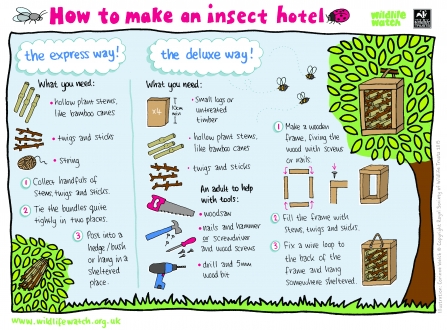 How to make an insect hotel
wildlife
watch
the express way!
What you need:
• hollow plant stems,
like bamboo canes
• twigs and sticks
• string
1 Collect handfuls of
stems, twigs and sticks.
2 Tie the bundles quite
tightly in two places.
3 Post into a
hedge/bush
or hang in a
sheltered
place.
the deluxe way!
What you need:
x4
10cm
min
• Small logs or
untreated
timber
• hollow plant stems,
like bamboo canes
• twigs and sticks
An adult to help
with tools:
• woodsaw
• nails and hammer
or screwdriver
and wood screws
• drill and 5mm
wood bit
1 Make a wooden
frame, fixing the
wood with screws
or nails.
2 Fill the frame with
stems, twigs and sticks.
3 Fix a wire loop to
the back of the
frame and hang
somewhere sheltered.
www.wildlifewatch.org.uk